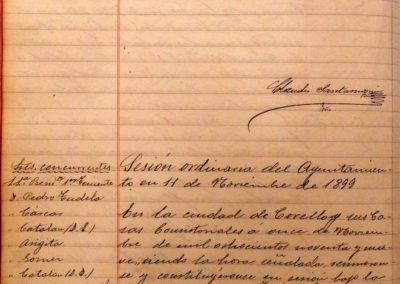 Claudio Santamaria
Sres. concurrentes
Sr. Presid.te 1er Teniente
D. Pedro Tudela
" Garcés
" Catalan (D. I.)
" Arigita
" Gomez
" Catalan (D. B.)
Sesión ordinaria del Ayuntamien-
to en 11 de Noviembre de 1899
En la ciudad de Corella y sus Ca-
sas Consistoriales á once de Noviem-
bre de mil ochocientos noventa y nue-
ve, siendo la hora señalada, reunieron-
se y constituyéronse en sesión bajo la